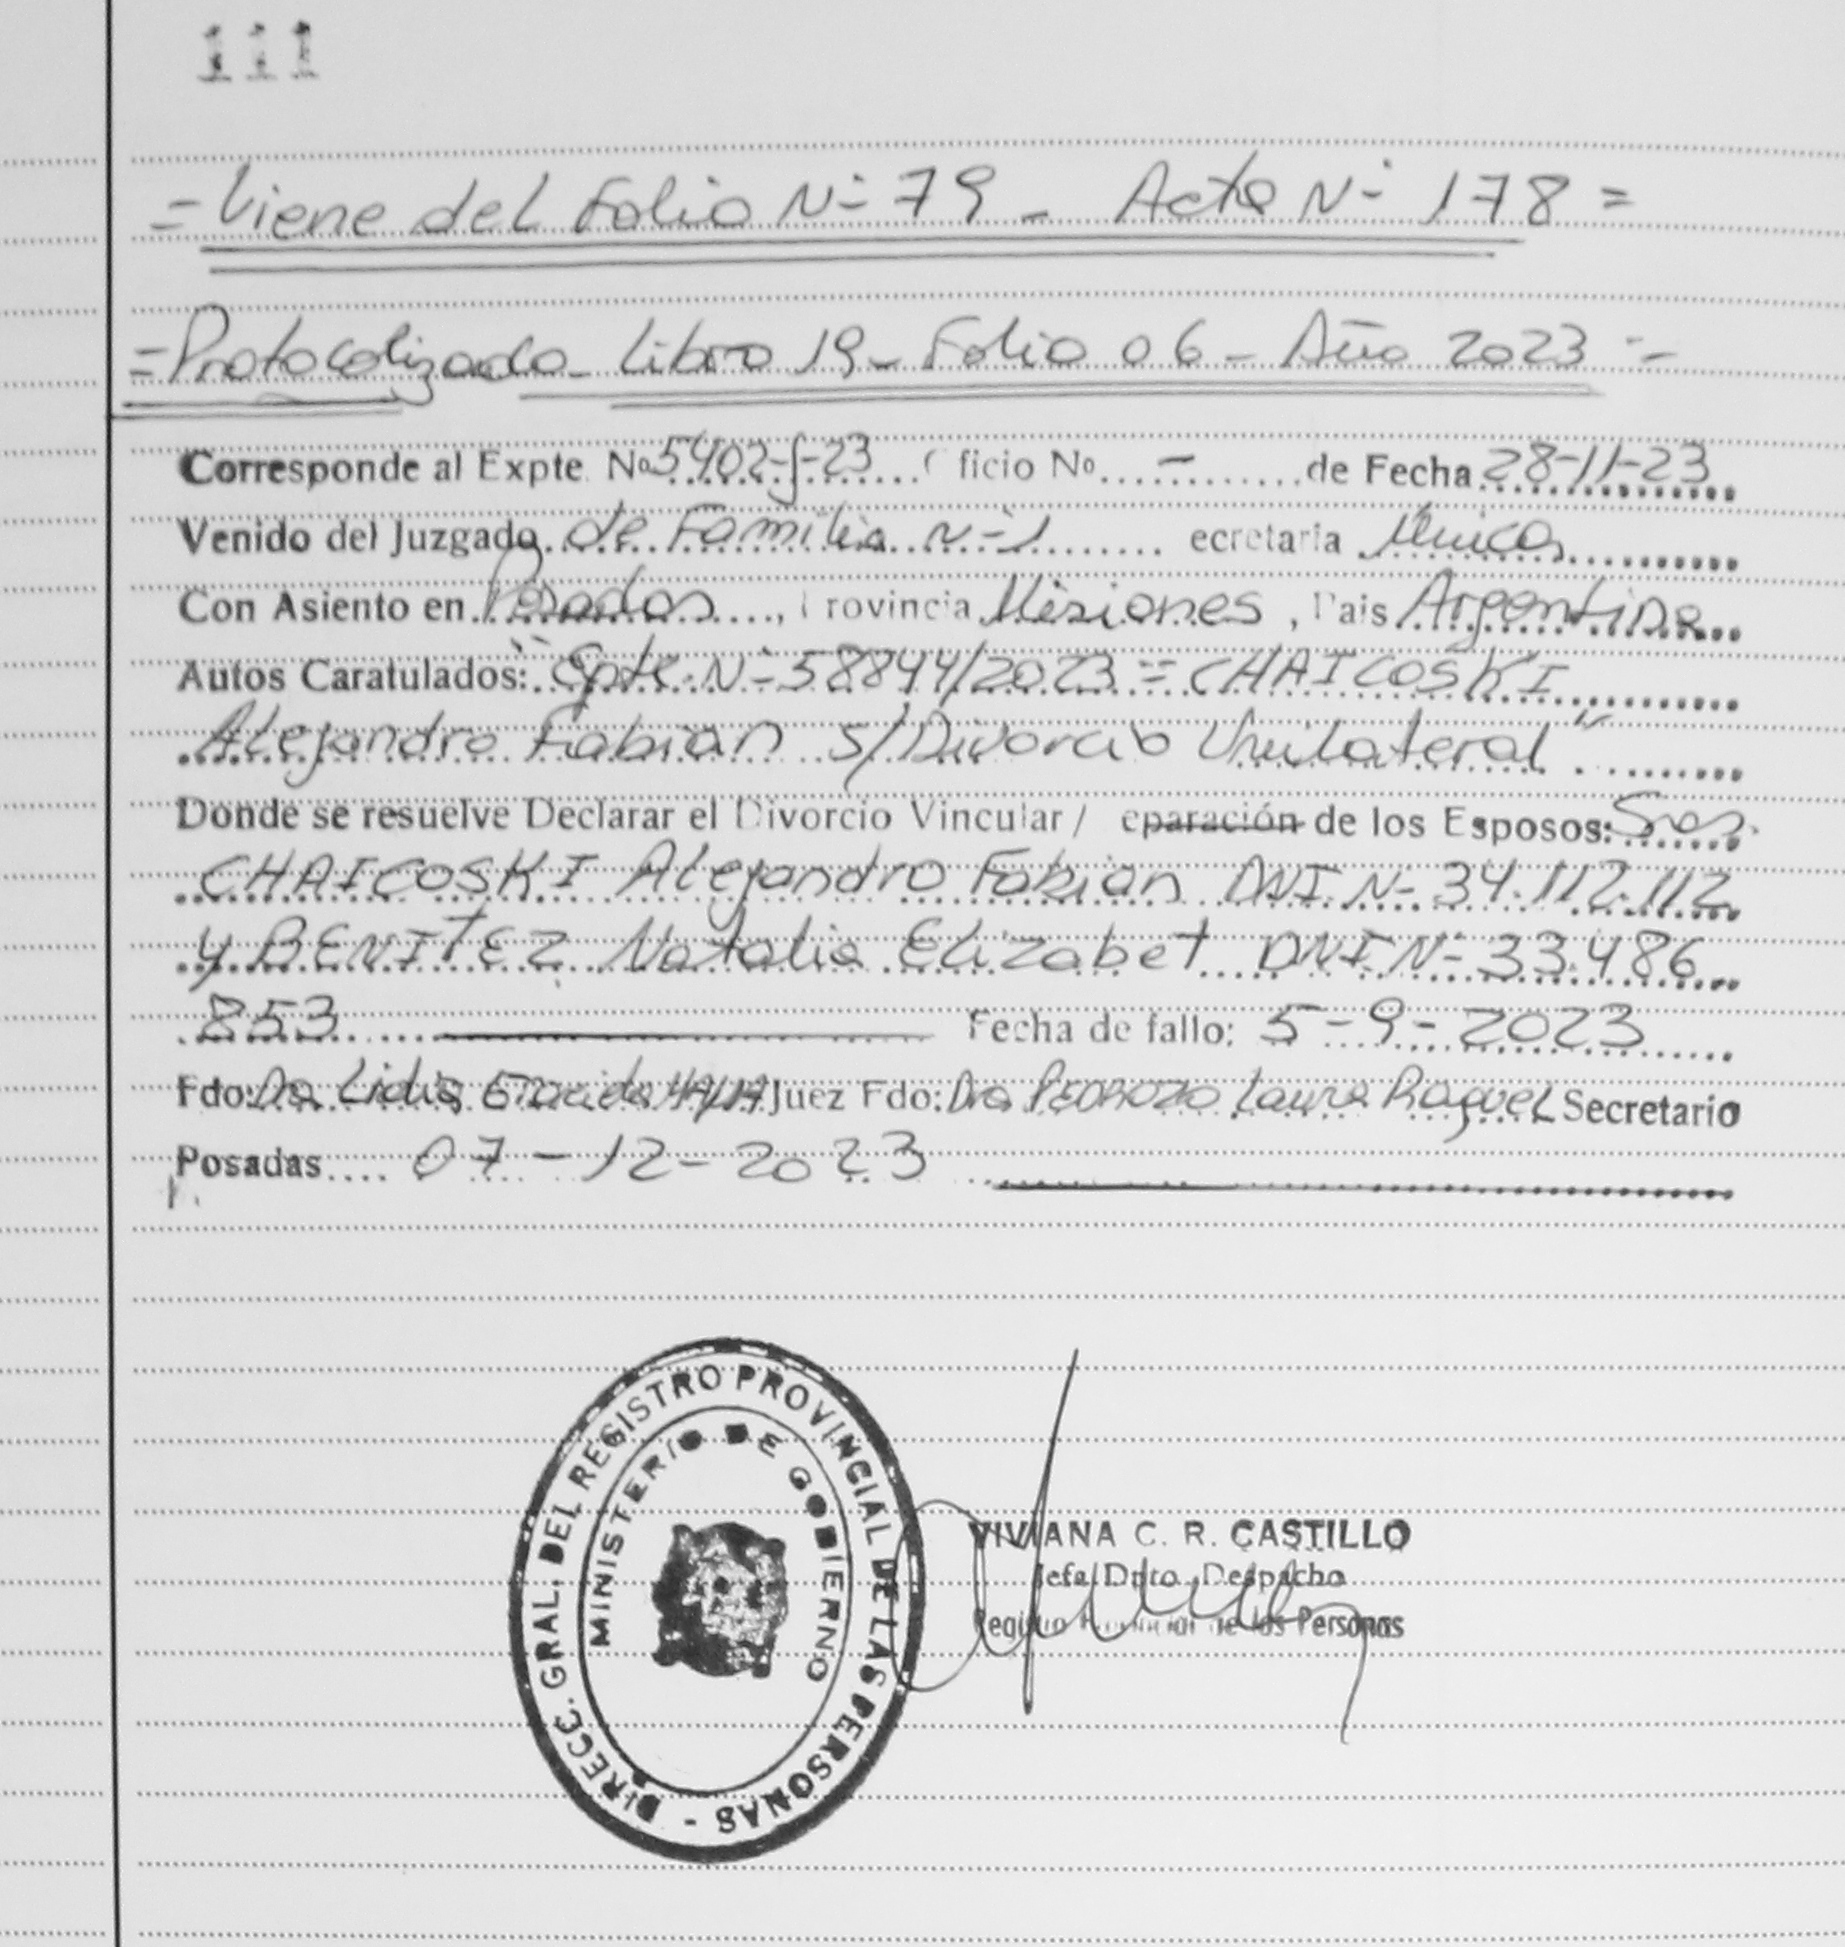 111
= Viene del Folio Nº 79 - Acta Nº 178 =
= Protocolizado - Libro 19 - Folio 06 - Año 2023 =
Corresponde al Expte. Nº 5402-J-23 ficio Nº - de Fecha 28-11-23
Venido del Juzgado de Familia Nº 1 ecretaria Unica
Con Asiento en Posadas, Provincia Misiones, Pais Argentina
Autos Caratulados: "Epte. Nº 58844/2023 = CHAICOSKI
Alejandro Fabian S/ Divorcio Unilateral"
Donde se resuelve Declarar el Divorcio Vincular / eparación de los Esposos: Sres.
CHAICOSKI Alejandro Fabian DNI Nº 34.112.112
y BENITEZ Natalia Elizabet DNI Nº 33.486
853 Fecha de fallo: 5-9-2023
Fdo: Dra. Lidia Juez Fdo: Dra PEDROZO Laura Raquel Secretario
Posadas 07-12-2023
DIRECC. GRAL. DEL REGISTRO PROVINCIAL DE LAS PERSONAS -
MINISTERIO DE GOBIERNO
VIVIANA C. R. CASTILLO
Jefa Dpto. Despacho
Registro Provincial de las Personas